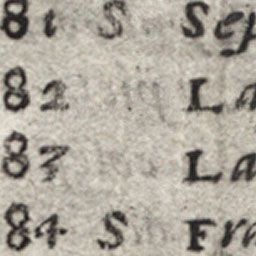 81 S Sep
82 La
83 La
84 S Fra